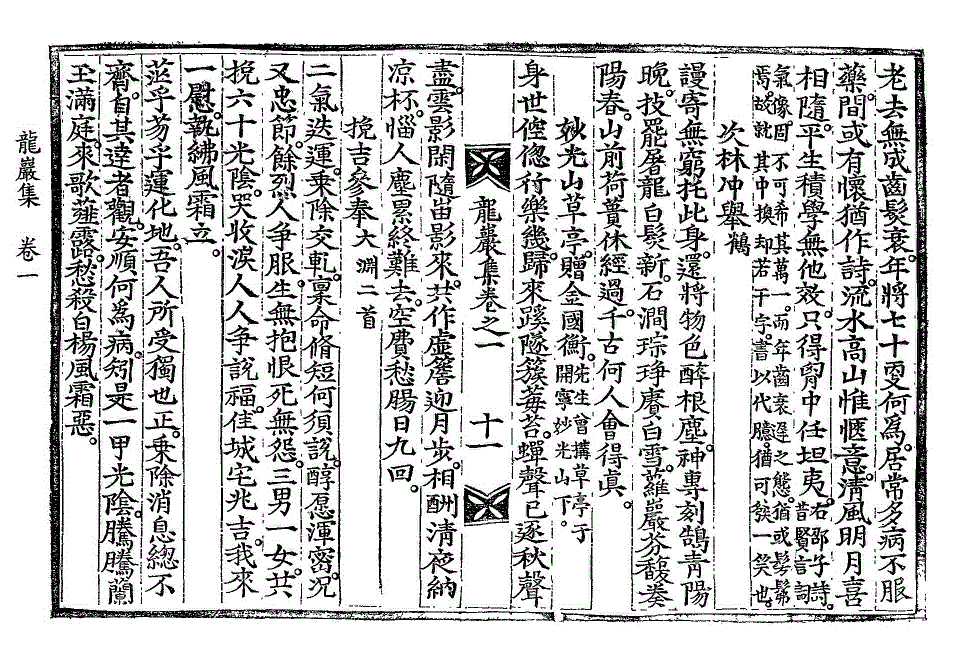 老去無成齒髮衰年將七十更何爲居常多病不服
藥間或有懷猶作詩流水高山惟愜意淸風明月喜
相隨平生積學無他效只得胷中任坦夷右邵子詩昔賢言詞
氣像固不可希其萬一而年齒衰遲之態猶或髣髴
焉故就其中換却若干字書以代臆猶可發一笑也
次林冲擧鶴
謾寄無窮托此身還將物色醉根塵神專刻鵠靑陽
晩技罷屠龍白髮新石澗琮琤賡白雪蘿巖芬馥葵
陽春山前荷蕢休經過千古何人會得眞
妙光山草亭贈金國衡先生曾搆草亭于開寧妙光山下
身世倥偬行樂幾歸來蹊隧簇莓苔蟬聲已逐秋聲
龍巖集卷之一 十一
盡雲影閑隨畄影來共作虛簷迎月步相酬淸夜納
凉杯惱人塵累終難去空費愁腸日九回
挽吉參奉大淵二首
二氣迭運乘除交軋稟命脩短何須說醇愿渾密况
又忠節餘烈人爭服生無抱恨死無怨三男一女共
挽六十光陰哭收淚人人爭說福佳城宅兆吉我來
一慰執紼風霜立
莁乎芴乎運化地吾人所受獨也正乘除消息總不
齊自其達者觀安順何爲病矧是一甲光陰騰騰蘭
玉滿庭來歌薤露愁殺白楊風霜惡
龍巖集 卷一